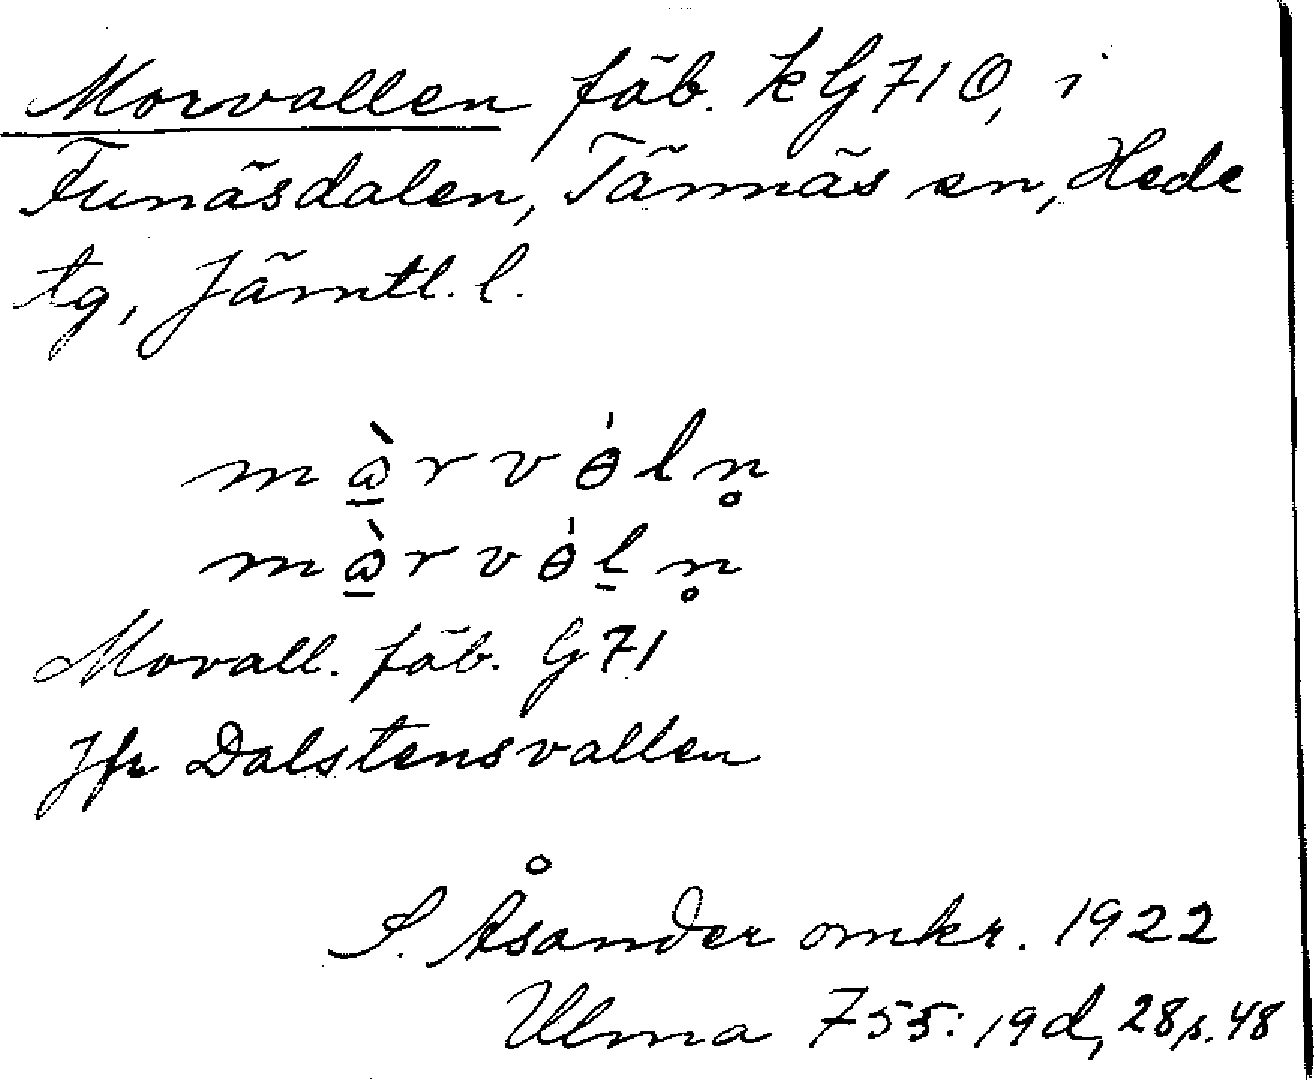 Morvallen fäb. kG710, i
Funäsdalen, Tännäs sn, Hede
tg, Jämtl. l.
m r v l n
m r v l n
Morvall. fäb. G71
Jfr Dalstensvallen
S. Åsander omkr. 1922
Ulma 755: 19d, 28 s. 48